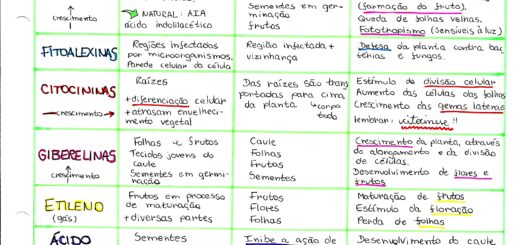 Sementes em ger- (formação do fruto).
crescimento NATURAL: AIA minação Queda de folhas velhas.
ácido indolilacético frutos Fototropismo (sensíveis à luz)
FITOALEXINAS Regiões infectadas Região infectada + Defesa da planta contra bac
por microorganismos. vizinhança térias e fungos.
Parede celular da célula
CITOCININAS Raízes Das raízes são trans Estímulo da divisão celular
+ diferenciação celular portadas para cima Aumento das células das folhas
crescimento + atrasam envelheci- da planta Crescimento das gemas laterais
mento vegetal lembrar: !!
GIBERELINAS Folhas e frutos Caule Crescimento da planta, através
Tecidos jovens do Folhas do alongamento e da divisão
caule Frutos de células.
crescimento Sementes em germi- Sementes Desenvolvimento de flores e
nação frutos
ETILENO Frutos em processo Frutos Maturação de frutos
(gás) de maturação Flores Estímulo da floração
+ diversas partes Folhas Perda de folhas
ÁCIDO Sementes Inibe a ação de Desenvolvimento do caule